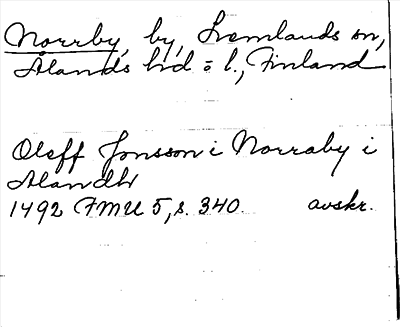 Norrby, by, Lemlands sn,
Ålands hd = l., Finland
Oleff Jonsson i Norraby i
Alandh
1492 FMU 5, s. 340. avskr.